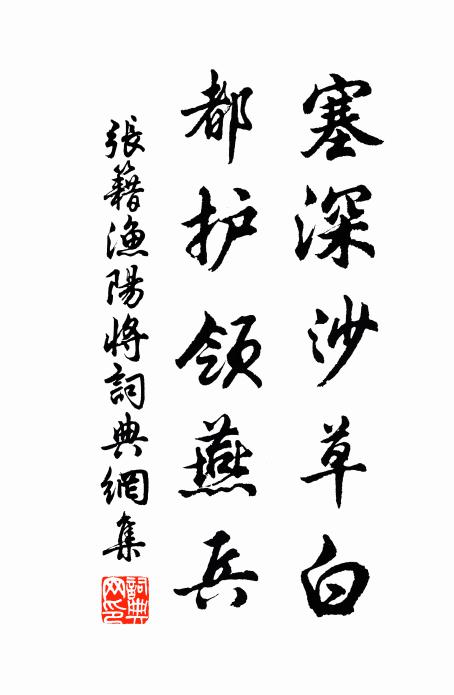 塞深沙草白
都护领燕兵
張籍漁陽將詞典網集
詞典網印